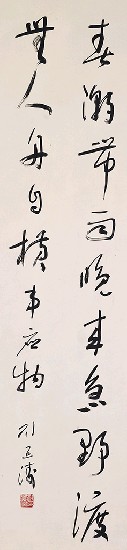 春潮带雨晚来急野渡
無人舟自横韦应物